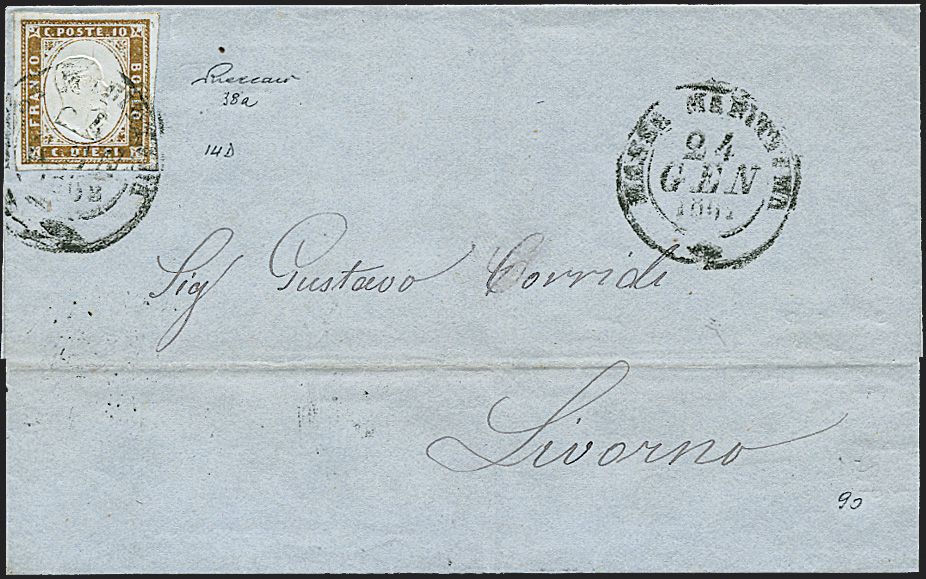 C. POSTE. 10
FRANCO
BOLLO
C. DIECI
38a
14D
MASSA MARITTIMA
24
GEN
Sig Gustavo Corridi
Livorno
90